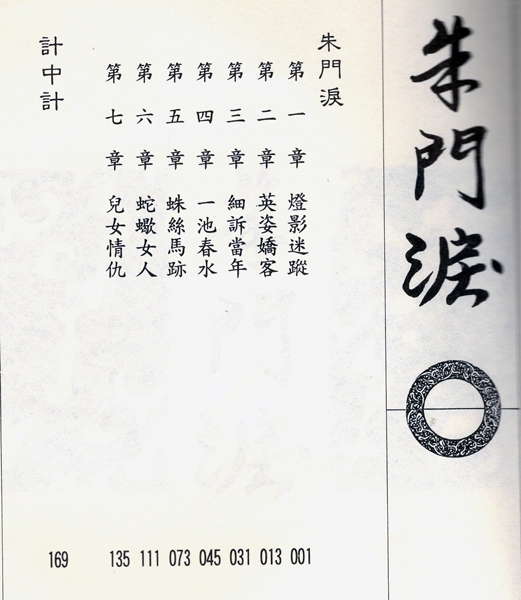 朱門淚
朱門淚
第一章 燈影迷蹤 001
第二章 英姿嬌客 013
第三章 細訴當年 031
第四章 一池春水 045
第五章 蛛絲馬跡 073
第六章 蛇蠍女人 111
第七章 兒女情仇 135
計中計 169